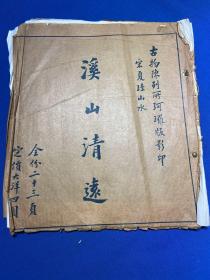 古物陳列所珂瓏版影印
宋夏珪山水
溪山清遠
全份二十三頁
定價大洋四圓